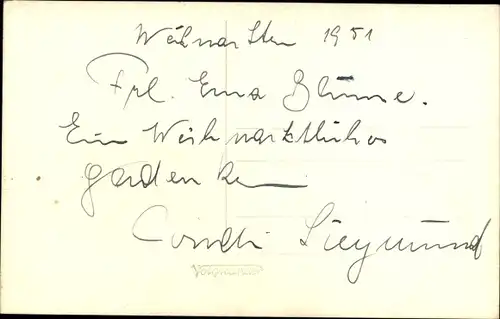 Weihnachten 1951
Frl. Erna Blume.
Ein Weihnachtliches
gedenken
Condi Siegmund